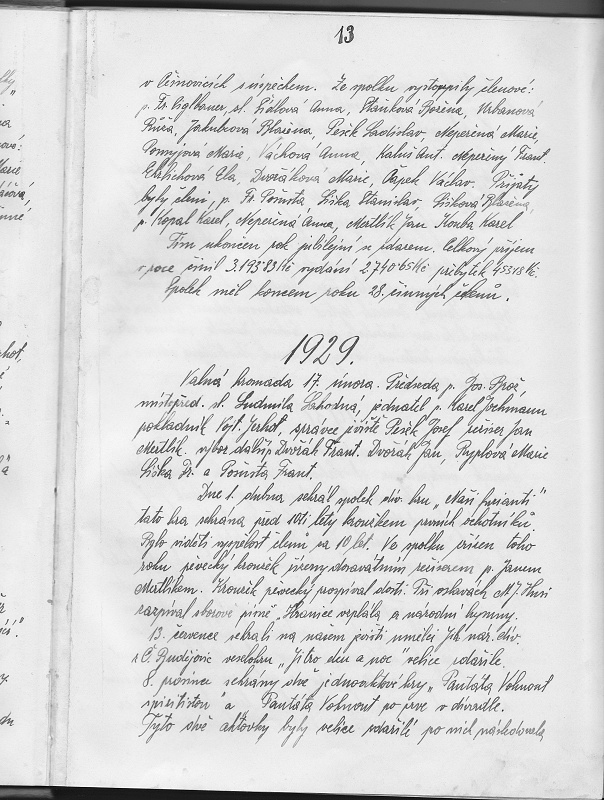 13
v Češnovicích s úspěchem. Ze spolku vystoupili členové:
p. Fr. Viglbauer, sl. Šidlová Anna, Plášková Božena, Urbanová
Růža, Jakubcová Blažena, Pešek Ladislav, Nepeřená Marie,
Marie, Váchová Anna, Kalný Ant. Nepeřený Frant.
Ehrlichová Ela, Dvořáková Marie. Čapek Václav. Přijaty
byly členi, p. Fr. Pošusta Liška Stanislav, Lišková Blažena,
p. Kopal Karel, Nepeřená Anna, Mertlík Jan Kouba Karel
Tím ukončen rok jubilejní se zdarem. Celkový příjem
v roce činil 3.193·83 Kč vydání 2.740·65 Kč přebytek 453·18 Kč.
Spolek měl koncem roku 28. činných členů.
1929.
Valná hromada 17. února. Předseda p. Jos. Brož,
místopřed. sl. Ludmila Lahodná, jednatel p. Karel Jochmann
pokladník Vojt. Jerhot, správce jeviště Pešek Josef, režiser Jan
Mertlík. výbor další Dvořák Frant. Dvořák Jan, Ryplová Marie
Liška Fr. a Pošusta Frant.
Dne 1. dubna sehrál spolek div. hru „Naši furianti"
tato hra sehrána před 10ti léty kroužkem prvních ochotníků.
Bylo viděti vyspělost členů za 10 let. Ve spolku zřízen toho
roku pěvecký kroužek řízený dosavadním režiserem p. Janem
Mertlíkem. Kroužek pěvecký prospíval dosti. Při oslavách M. J. Husi
zazpíval sborové písně „Hranice vzplála a národní hymny.
13. července sehráli na našem jevišti umělci Jih. nár. div.
z Č. Budějovic veselohru „Jitro den a noc" velice zdařile.
8. prosince sehrány dvě jednoaktové hry „Pantáta Vohnout
spiritistou" a „Pantáta Vohnout po prve v divadle.
Tyto dvě aktovky byly velice zdařilé po nich následovala